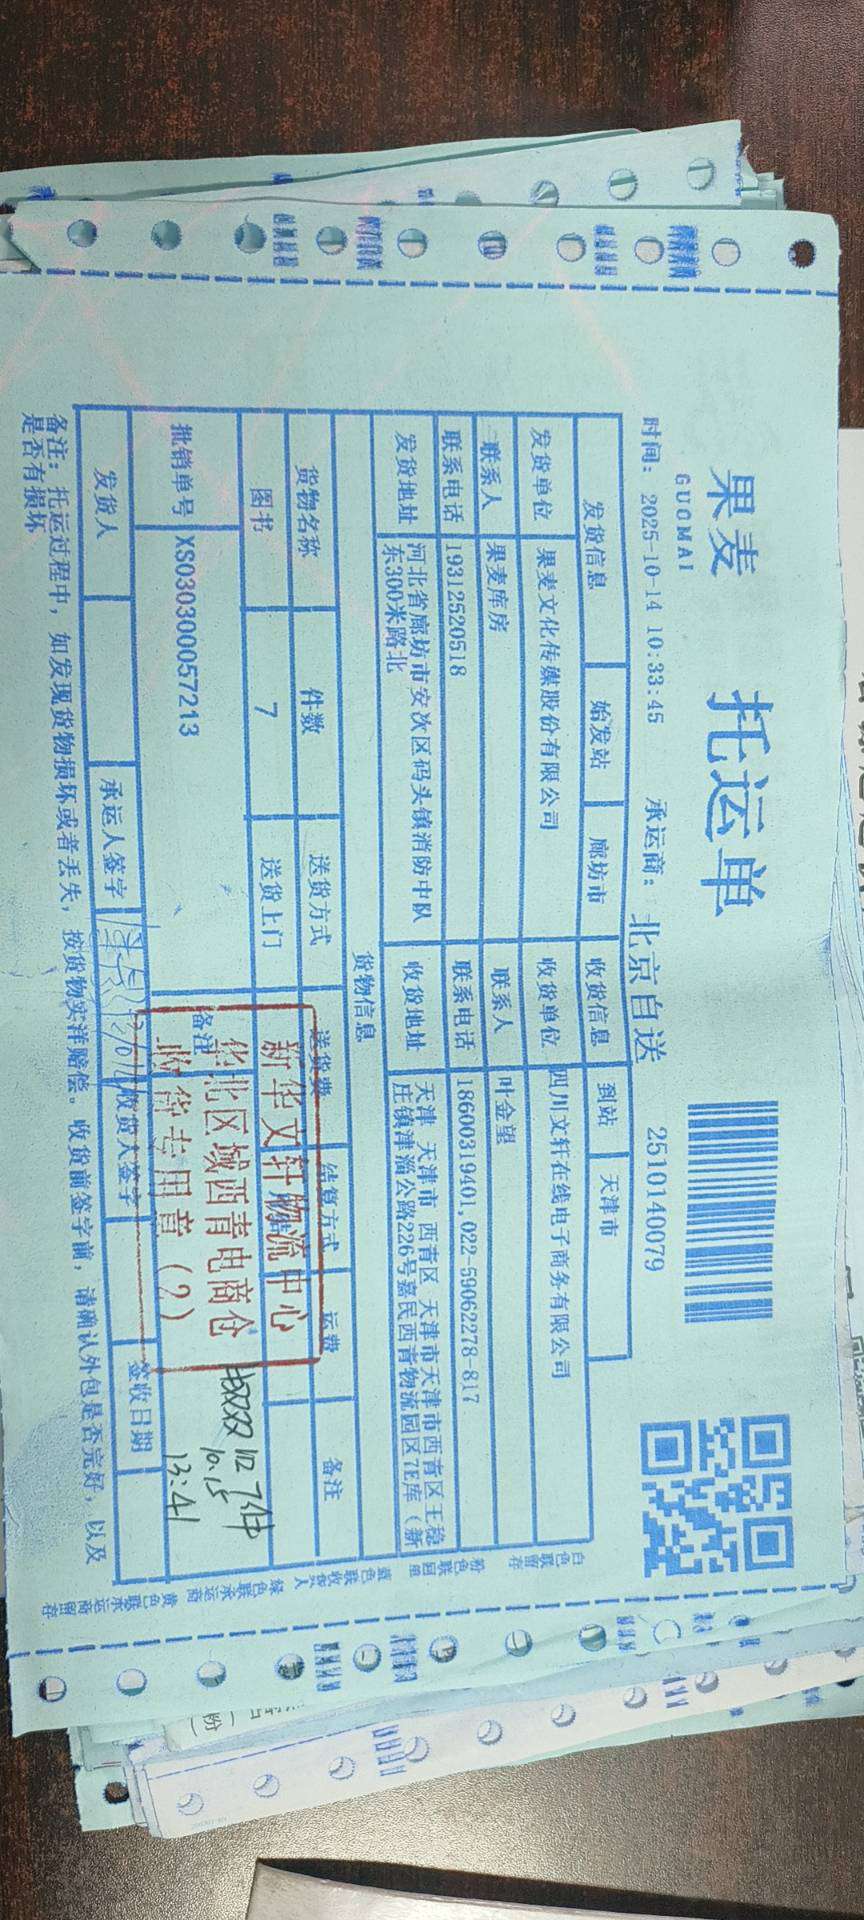 果麦 托运单
GUOMAI
时间: 2025-10-14 10:33:45 承运商: 北京自送 2510140079
发货信息 始发站 廊坊市 收货信息 到站 天津市
发货单位 果麦文化传媒股份有限公司 收货单位 四川文轩在线电子商务有限公司
联系人 果麦库房 联系人 叶金望
联系电话 19312520518 联系电话 18600319401,022-59062278-817
发货地址 河北省廊坊市安次区码头镇消防中队
东300米路北
收货地址 天津 天津市 西青区 天津市天津市西青区王稳
庄镇津淄公路226号嘉民西青物流园区7E库(新
货物信息
货物名称 件数 送货方式 送货费 结算方式 运费 备注
图书 7 送货上门
批销单号 XS030300057213 备注
新华文轩物流中心
华北区域西青电商仓
收货专用章(2)
7件
10.15
13:41
发货人 承运人签字 收货人签字 签收日期
备注: 托运过程中, 如发现货物损坏或者丢失, 按货物实洋赔偿。收货前签字前, 请确认外包是否完好, 以及
是否有损坏
白色联留存 粉色联回单 蓝色联收货人 绿色联承运商 黄色联承运商留存